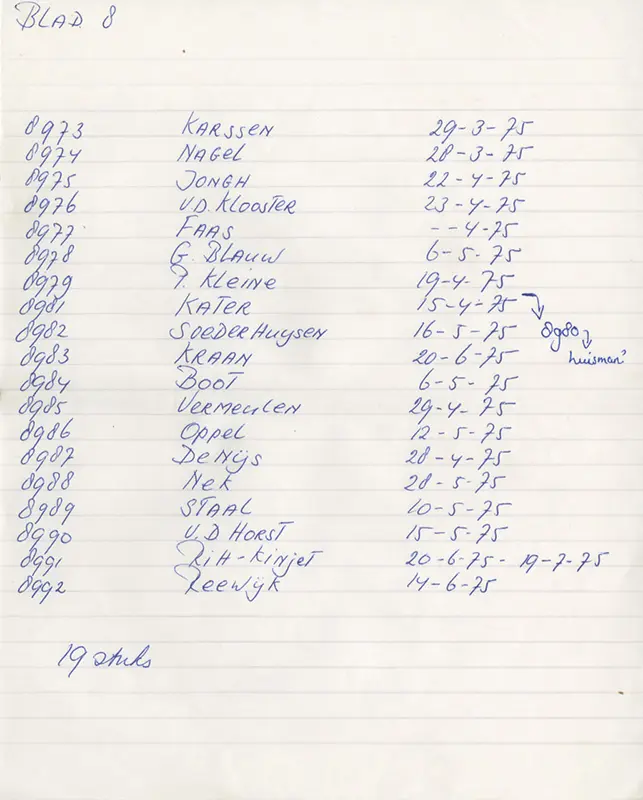 BLAD 8
8973 KARSSEN 29-3-75
8974 NAGEL 28-3-75
8975 JONGH 22-4-75
8976 V.D. KLOOSTER 23-4-75
8977 FAAS --4-75
8978 G. BLAUW 6-5-75
8979 P. KLEINE 19-4-75
8981 KATER 15-4-75
8982 SOEDERHUYSEN 16-5-75 8980
8983 KRAAN 20-6-75 huisman
8984 BOOT 6-5-75
8985 VERMEULEN 29-4-75
8986 OPPEL 12-5-75
8987 DE NIJS 28-4-75
8988 NEK 28-5-75
8989 STAAL 10-5-75
8990 V.D HORST 15-5-75
8991 RIH-KINJET 20-6-75 - 19-7-75
8992 REEWIJK 14-6-75
19 stuks